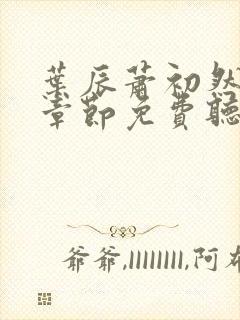 葉辰蕭初然
章節免費聽
爺爺,llllllll,阿布